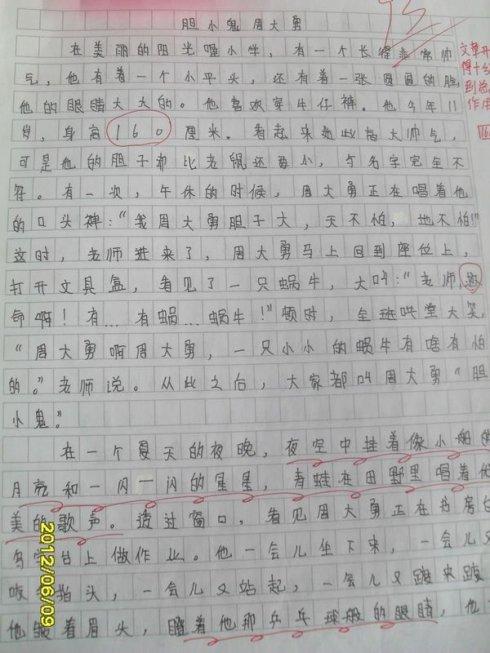 胆小鬼周大勇
在美丽的阳光喔小学，有一个长得非常帅
气，他有着一个小平头，还有着一张圆圆的脸，
他的眼睛大大的。他喜欢穿牛仔裤。他今年11
岁，身高160厘米。看起来高大帅气，
可是他的胆子却比老鼠还要小，与名字完全不
符。有一次，午休的时候，周大勇正在唱着他
的口头禅：“我周大勇胆子大，天不怕，地不怕！”
这时，老师进来了，周大勇马上回到座位上，
打开文具盒，看见了一只蜗牛，大叫：“老师，救
命啊！有…有蜗…蜗牛！”顿时，全班哄堂大笑，
“周大勇啊周大勇，一只小小的蜗牛有啥有怕
的。”老师说。从此之后，大家都叫周大勇“胆
小鬼。”
在一个夏天的夜晚，夜空中挂着像小船
月亮和一闪一闪的星星，青蛙在田野里唱着
美的歌声。透过窗口，看见周大勇正在书房
写字台上做作业。他一会儿坐下来，一会儿又
咬手指头，一会儿又站起，一会儿又踱来踱
他皱着眉头，瞪着他那乒乓球般的眼睛，他
文章开
得十分
到总
作用
2012/06/09